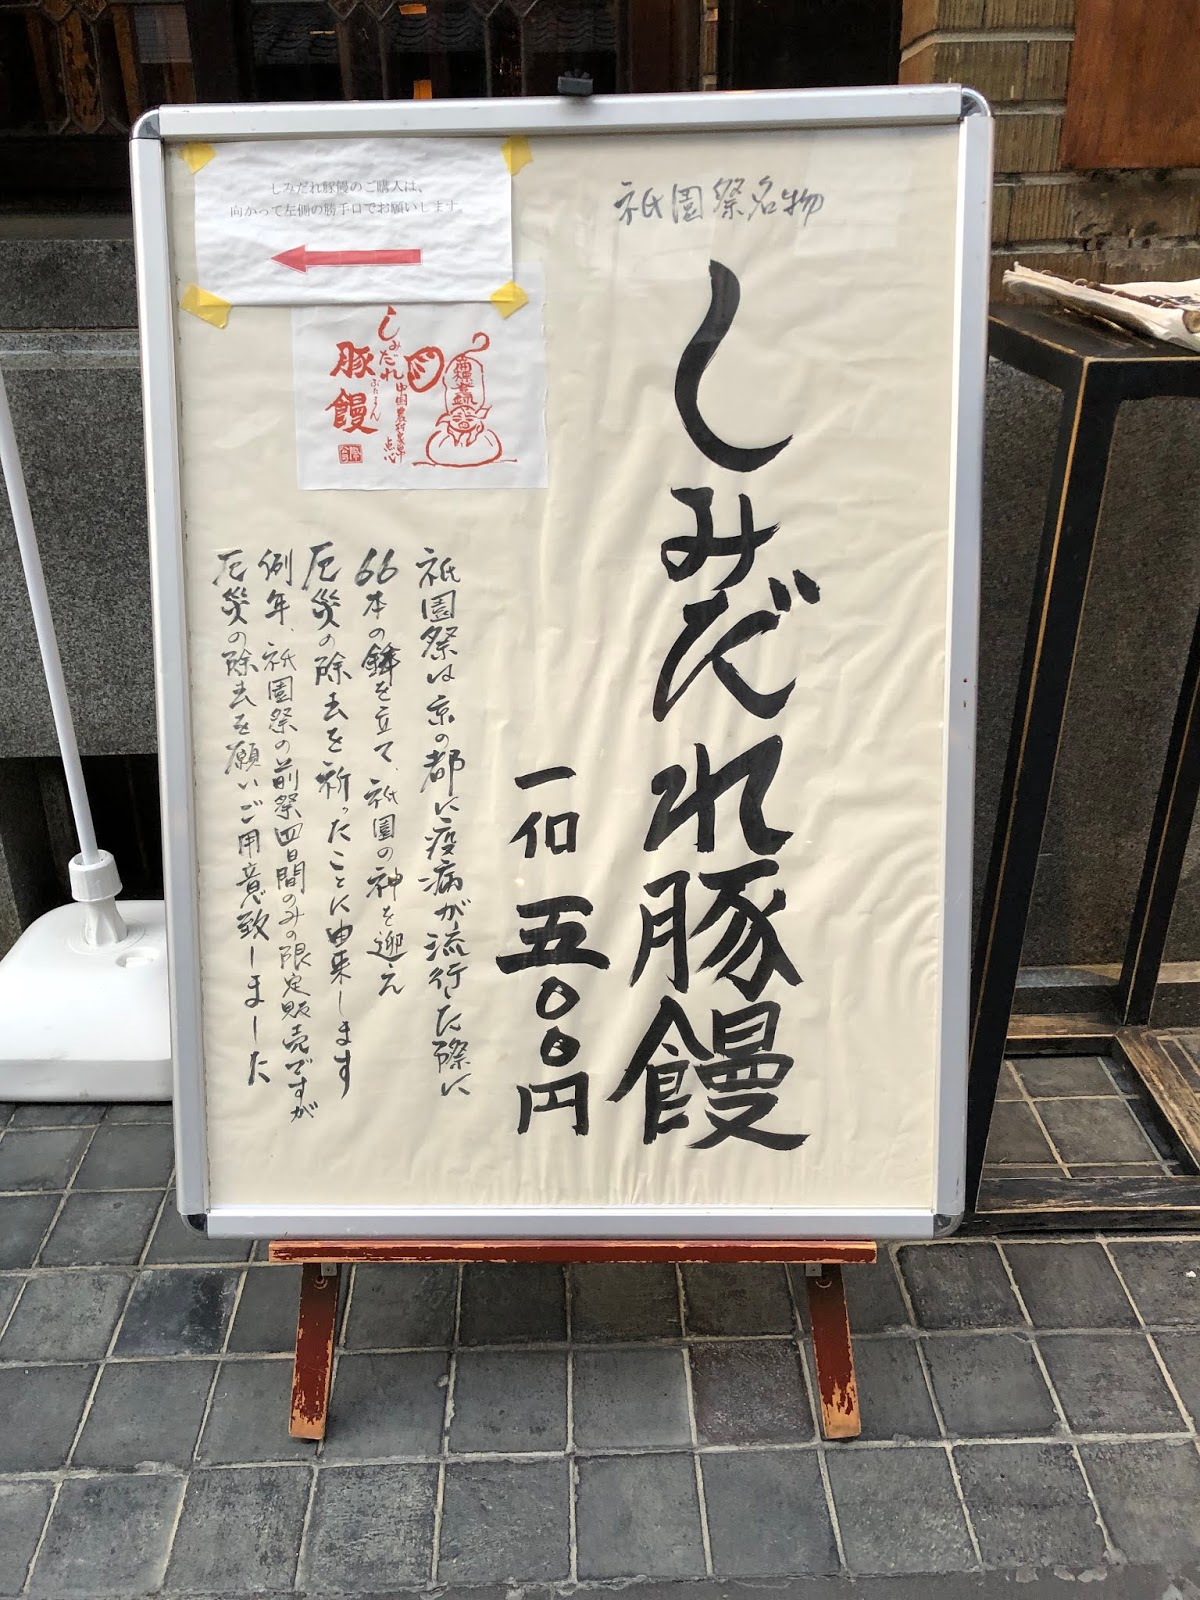 しみだれ豚饅のご購入は、
向かって左側の勝手口でお願いします。
祇園祭名物
しみだれ豚饅
一個 五〇〇円
しみだれ
豚饅
ぶたまん
中国農村家畢
点心
商標登録
祇園祭は京の都に疫病が流行した際に
66本の鉾を立て、祇園の神を迎え
厄災の除去を祈ったことに由来します
例年、祇園祭の前祭四日間のみの限定販売ですが
厄災の除去を願いご用意致しました